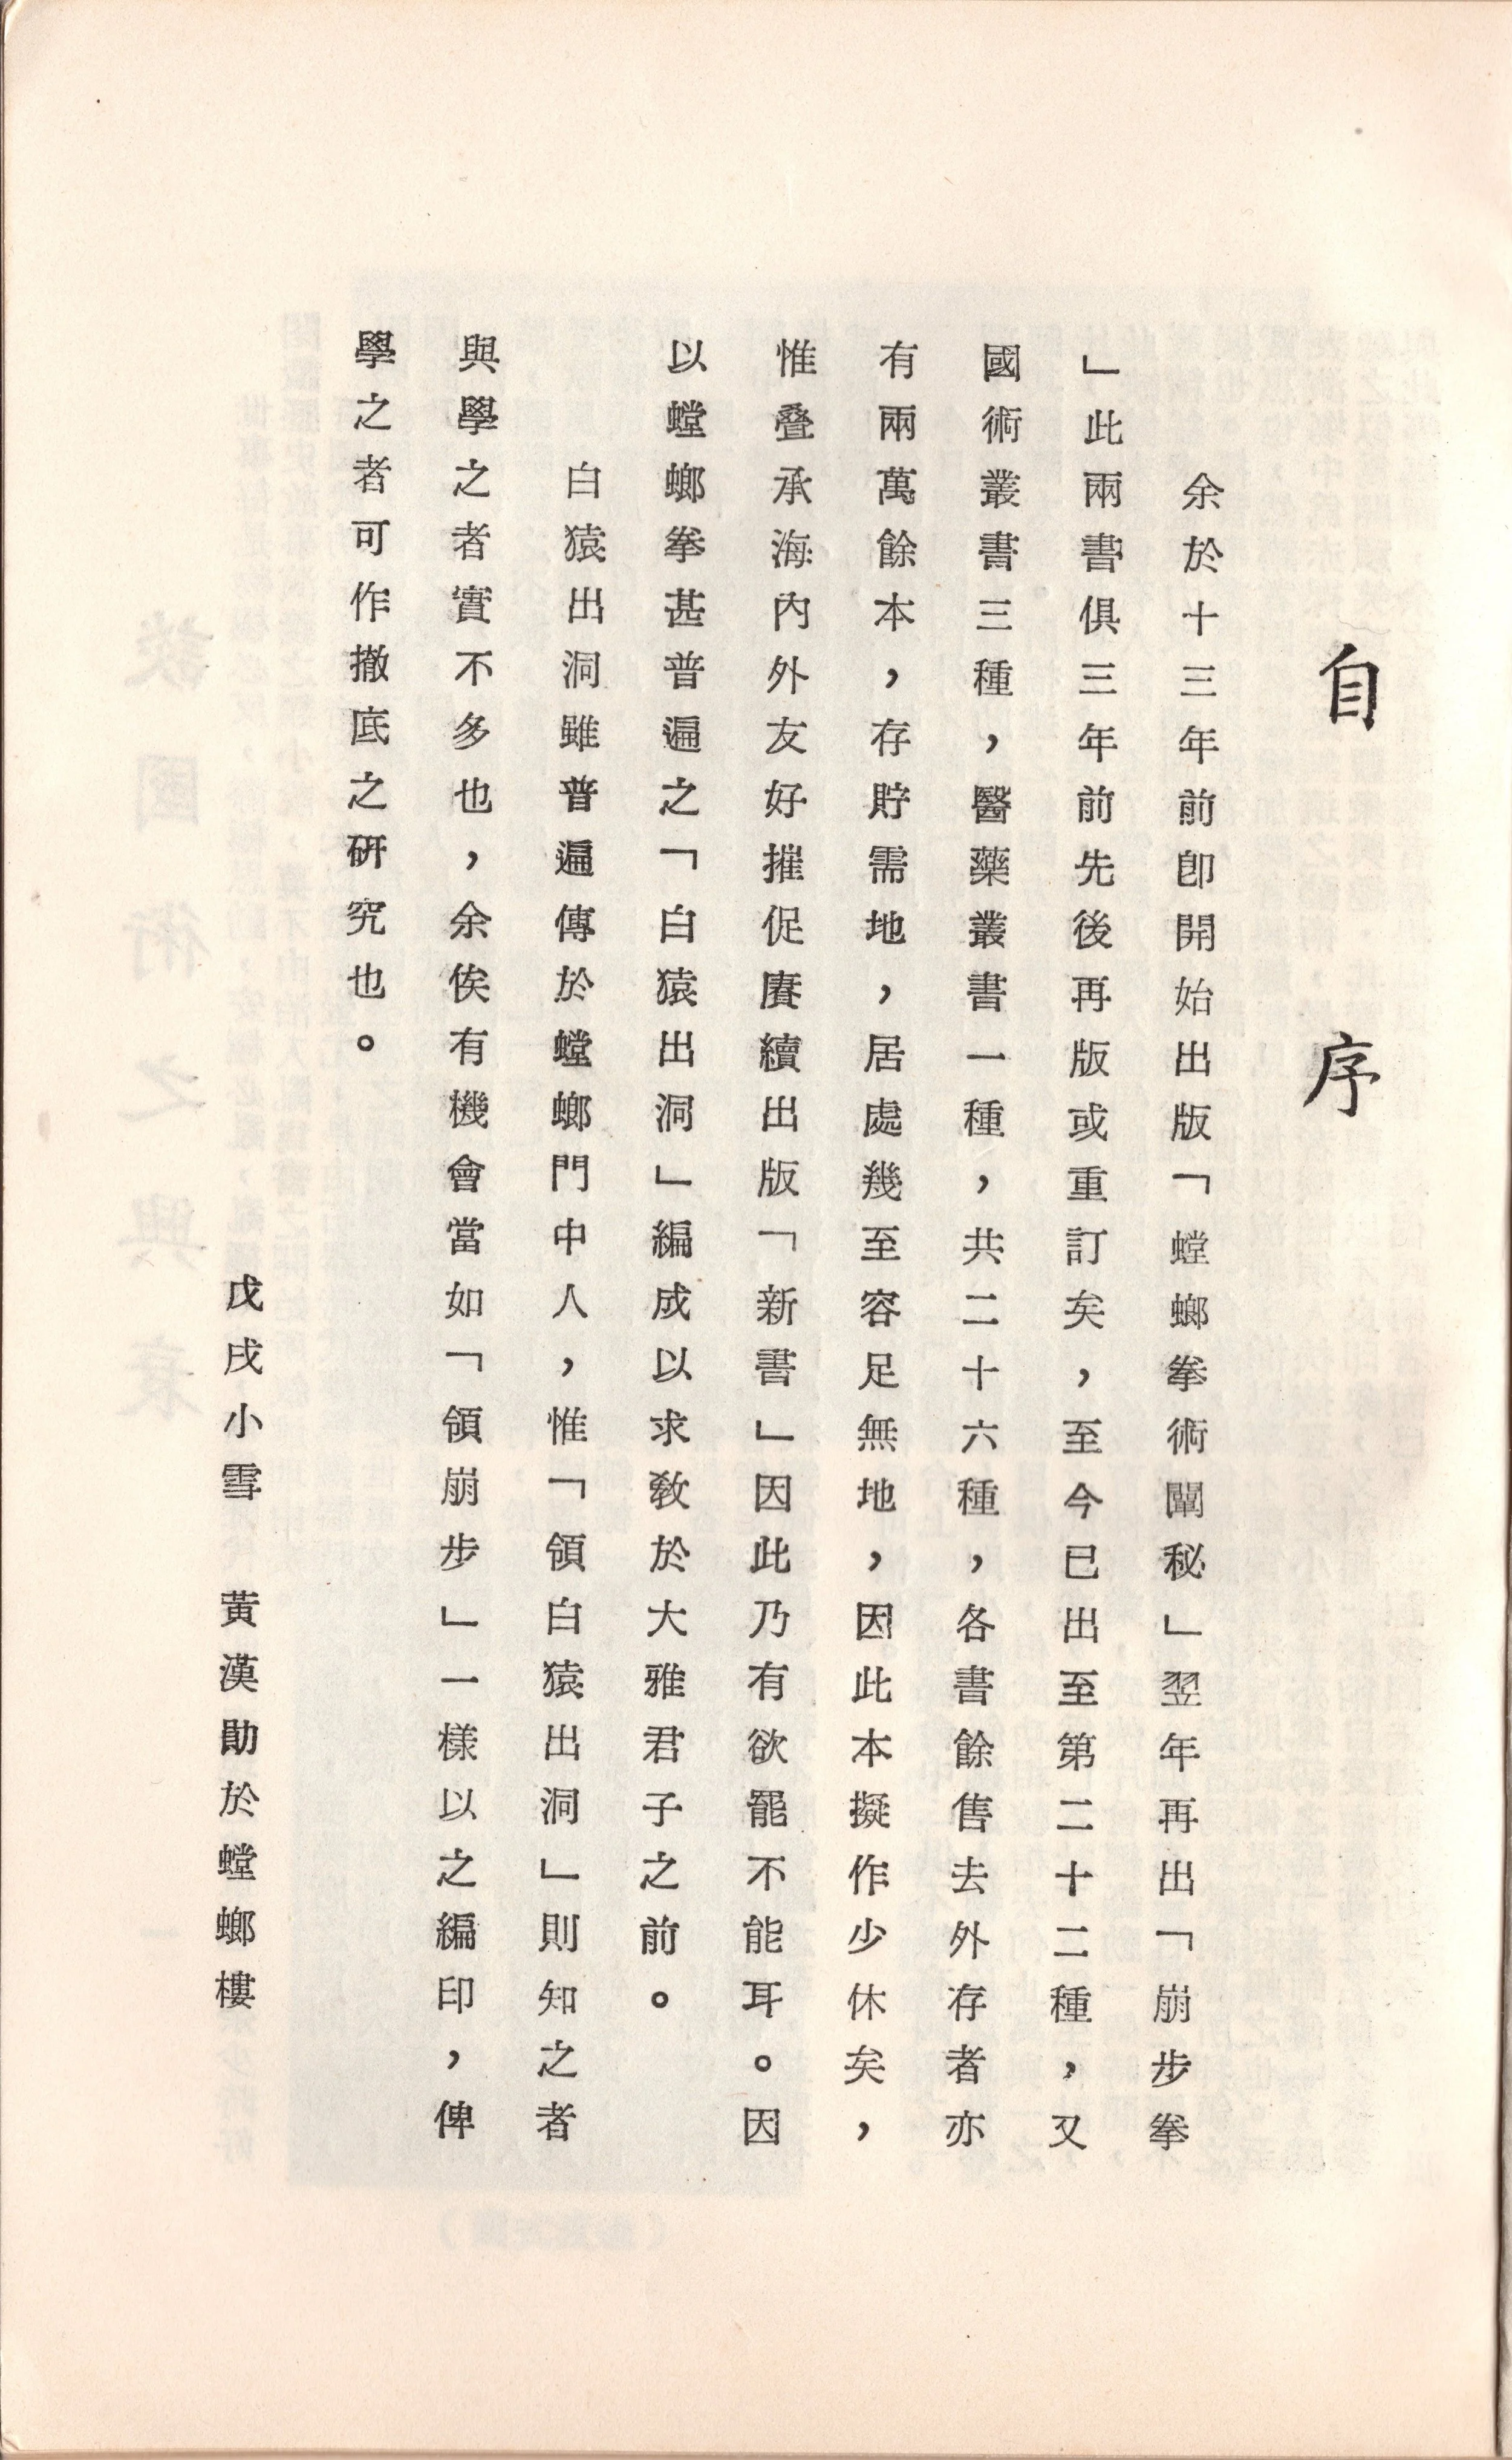 自序
余於十三年前卽開始出版「螳螂拳術闡秘」翌年再出「崩步拳
」此兩書俱三年前先後再版或重訂矣，至今已出至第二十二種，又
國術叢書三種，醫藥叢書一種，共二十六種，各書餘售去外存者亦
有兩萬餘本，存貯需地，居處幾至容足無地，因此本擬作少休矣，
惟叠承海內外友好摧促賡續出版「新書」因此乃有欲罷不能耳。因
以螳螂拳甚普遍之「白猿出洞」編成以求敎於大雅君子之前。
白猿出洞雖普遍傳於螳螂門中人，惟「領白猿出洞」則知之者
與學之者實不多也，余俟有機會當如「領崩步」一樣以之編印，俾
學之者可作撤底之硏究也。
戊戌小雪　黃漢勛於螳螂樓